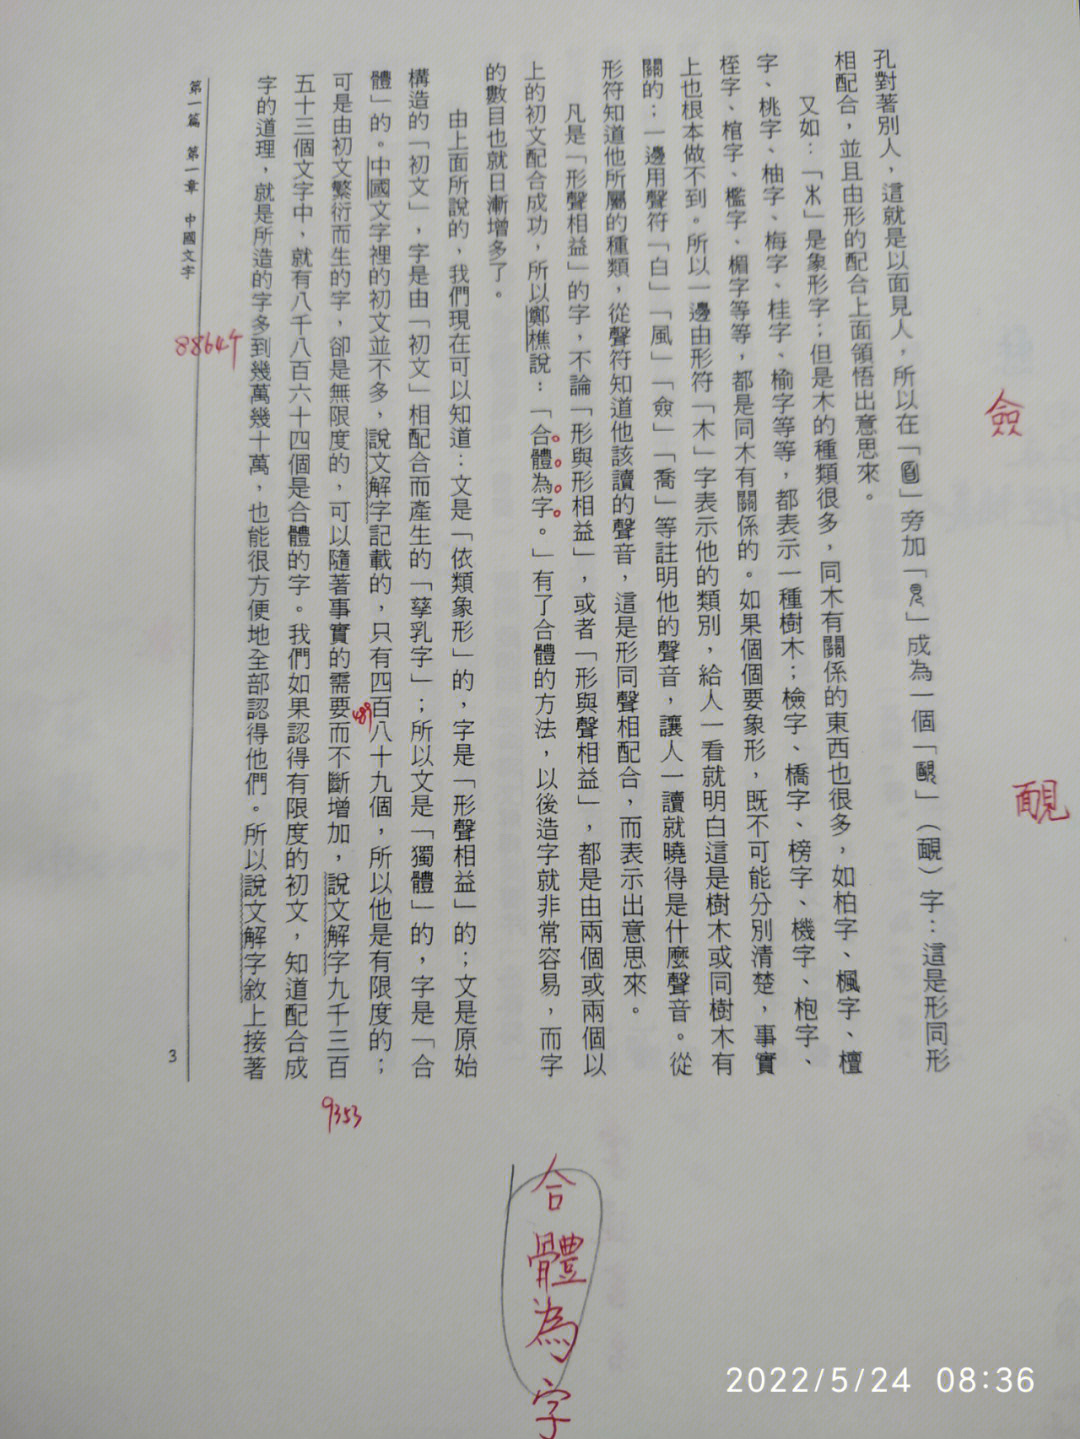 孔對著別人，這就是以面見人，所以在「」旁加「」成為一個「」（靦）字：這是形同形
相配合，並且由形的配合上面領悟出意思來。
又如：「木」是象形字；但是木的種類很多，同木有關係的東西也很多，如柏字、楓字、檀
字、桃字、柚字、梅字、桂字、榆字等等，都表示一種樹木；檢字、橋字、榜字、機字、枹字、
桎字、棺字、檻字、楣字等等，都是同木有關係的。如果個個要象形，既不可能分別清楚，事實
上也根本做不到。所以一邊由形符「木」字表示他的類別，給人一看就明白這是樹木或同樹木有
關的；一邊用聲符「白」「風」「僉」「喬」等註明他的聲音，讓人一讀就曉得是什麼聲音。從
形符知道他所屬的種類，從聲符知道他該讀的聲音，這是形同聲相配合，而表示出意思來。
凡是「形聲相益」的字，不論「形與形相益」，或者「形與聲相益」，都是由兩個或兩個以
上的初文配合成功，所以鄭樵說：「合體為字。」有了合體的方法，以後造字就非常容易，而字
的數目也就日漸增多了。
由上面所說的，我們現在可以知道：文是「依類象形」的，字是「形聲相益」的；文是原始
構造的「初文」，字是由「初文」相配合而產生的「孳乳字」；所以文是「獨體」的，字是「合
體」的。中國文字裡的初文並不多，說文解字記載的，只有四百八十九個，所以他是有限度的；
可是由初文繁衍而生的字，卻是無限度的，可以隨著事實的需要而不斷增加，說文解字九千三百
五十三個文字中，就有八千八百六十四個是合體的字。我們如果認得有限度的初文，知道配合成
字的道理，就是所造的字多到幾萬幾十萬，也能很方便地全部認得他們。所以說文解字敘上接著
第一篇 第一章 中國文字
3
僉
靦
8864个
489
9353
合體為字
2022/5/24 08:36